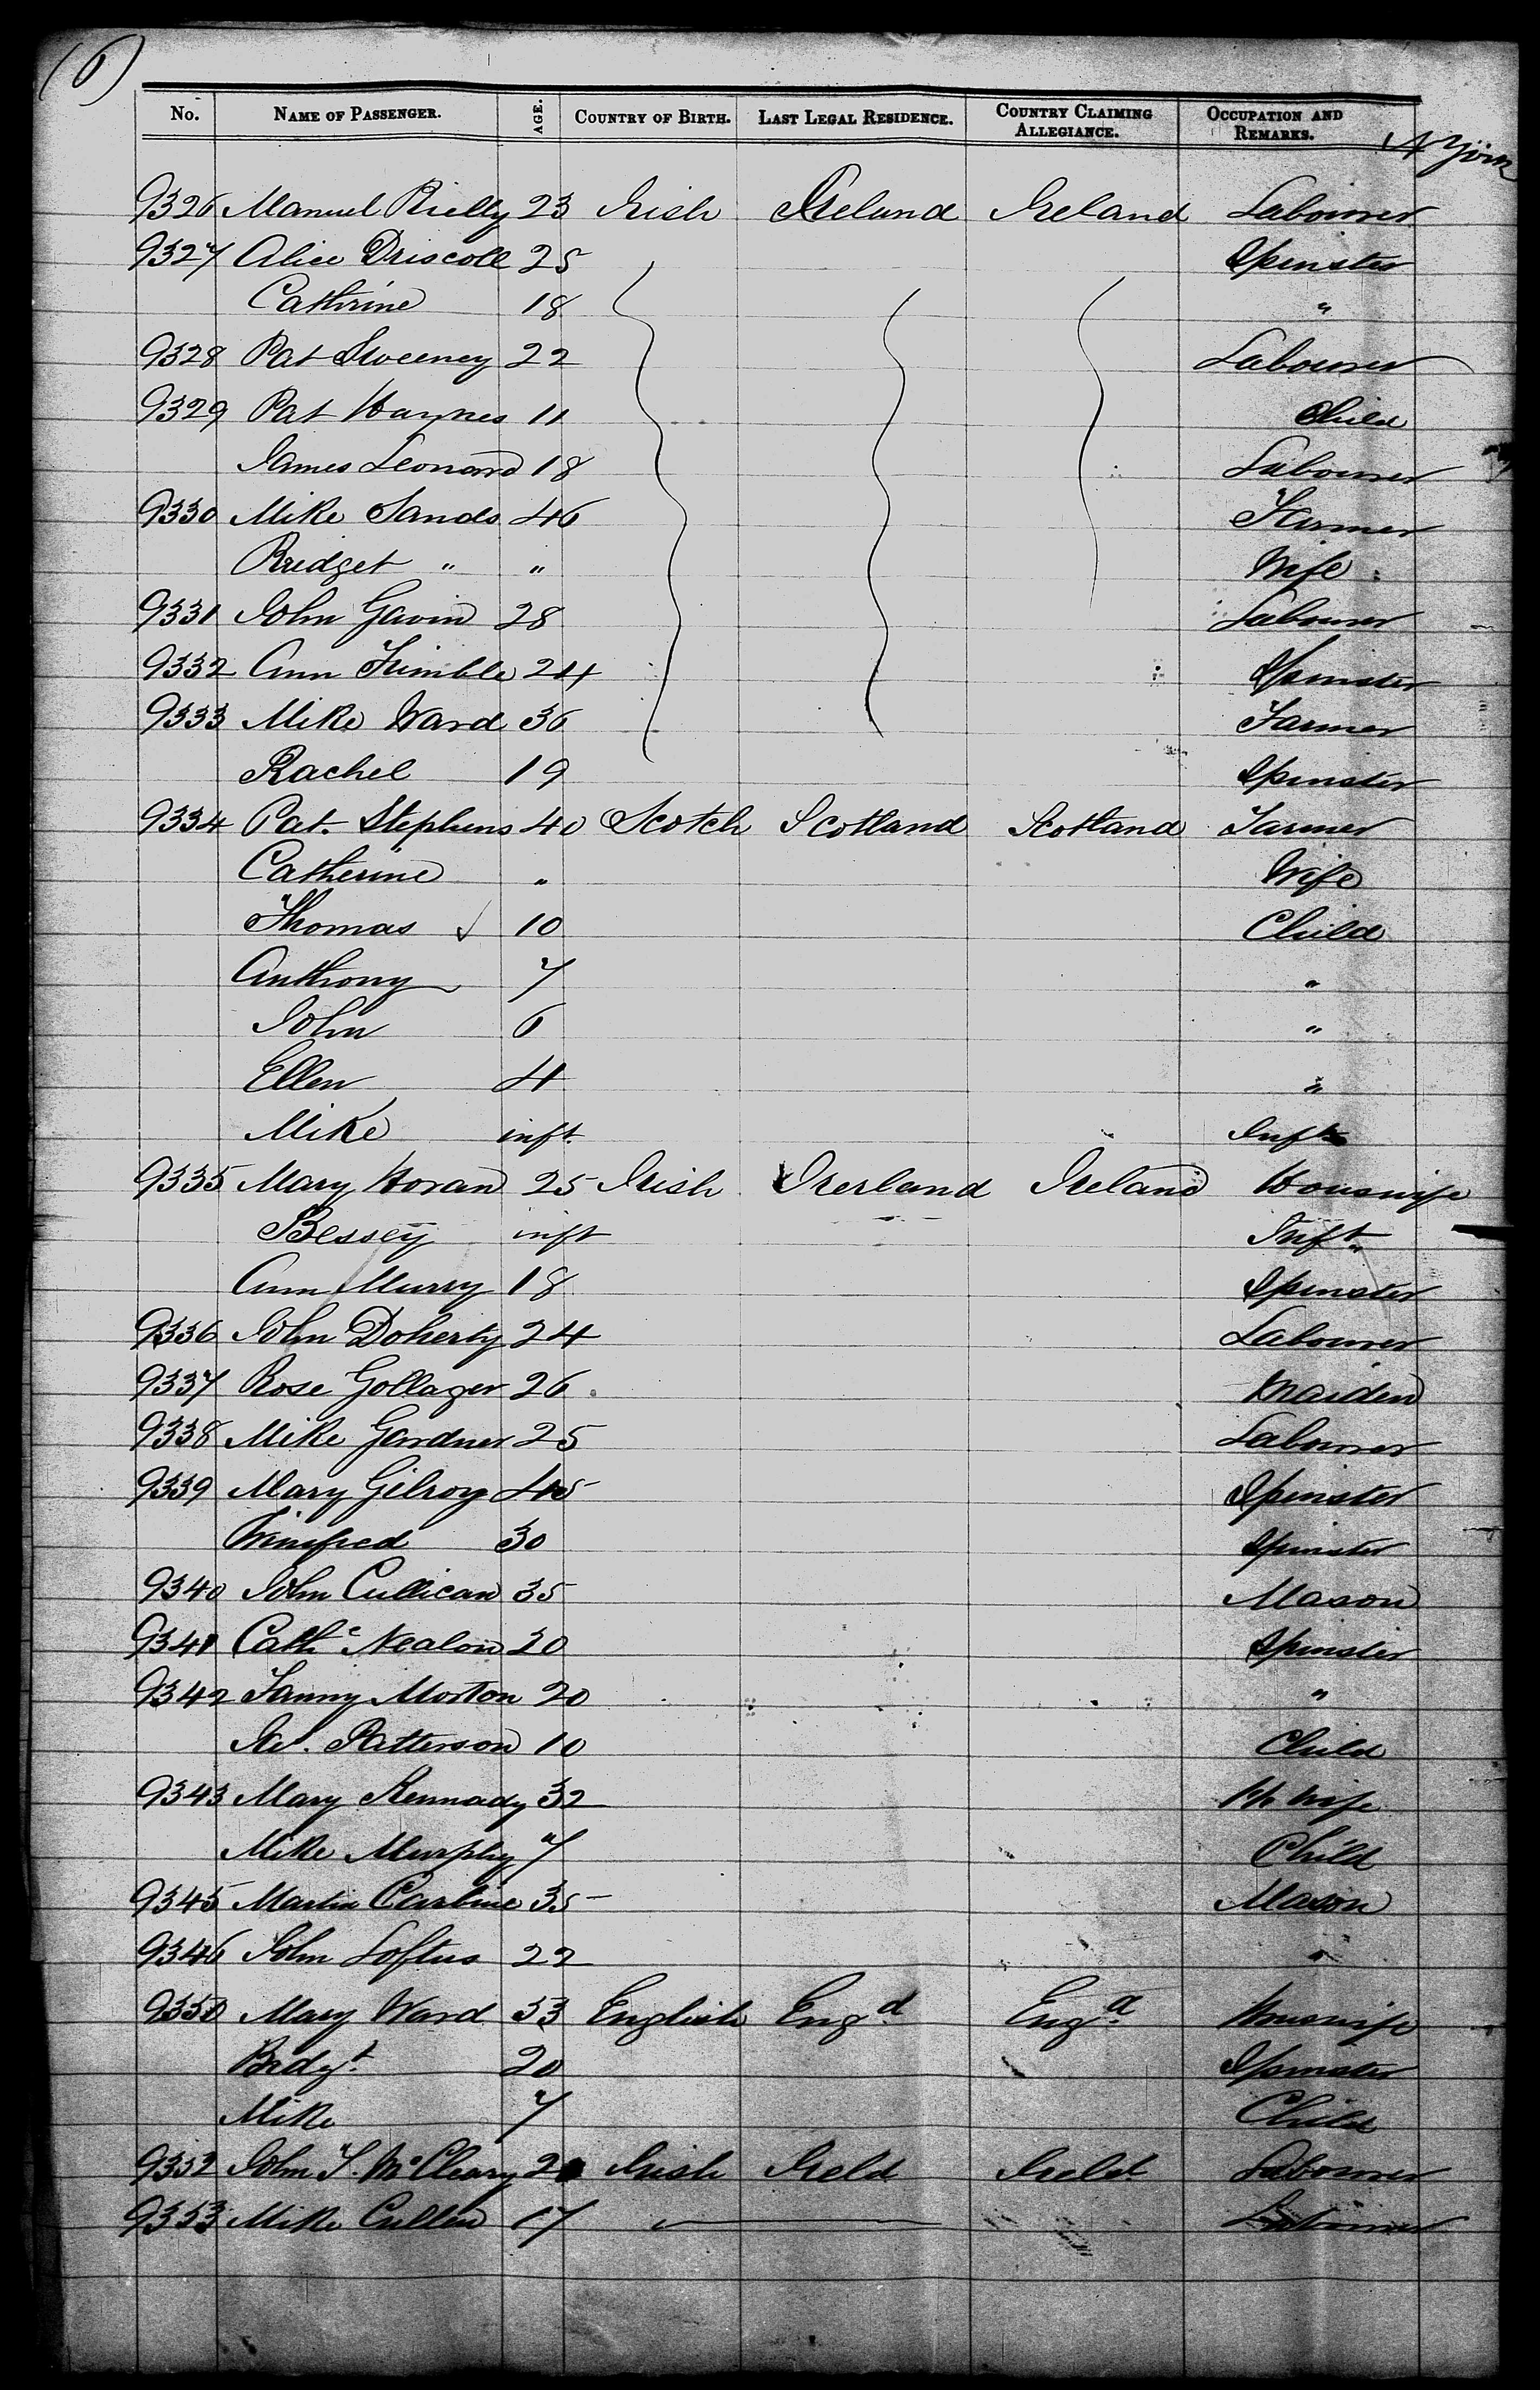 (6)
No. NAME OF PASSENGER. AGE. COUNTRY OF BIRTH. LAST LEGAL RESIDENCE. COUNTRY CLAIMING ALLEGIANCE. OCCUPATION AND REMARKS.
N York
9326 Manuel Rielly 23 Irish Ireland Ireland Labourer
9327 Alice Driscoll 25 Spinster
Cathrine 18 "
9328 Pat Sweeney 22 Labourer
9329 Pat Haynes 11 Child
James Leonard 18 Labourer
9330 Mike Sands 46 Farmer
Bridget " " Wife
9331 John Gavin 28 Labourer
9332 Ann Trimble 24 Spinster
9333 Mike Ward 36 Farmer
Rachel 19 Spinster
9334 Pat. Stephens 40 Scotch Scotland Scotland Farmer
Catherine " Wife
Thomas 10 Child
Anthony 7 "
John 6 "
Ellen 4 "
Mike inft. Inft
9335 Mary Horan 25 Irish Irerland Ireland Houswife
Bessey inft Inft
Ann Murry 18 Spinster
9336 John Doherty 24 Labourer
9337 Rose Gollager 26 Maiden
9338 Mike Gardner 25 Labourer
9339 Mary Gilroy 45 Spinster
Winifred 30 Spinster
9340 John Cullican 35 Mason
9341 Cathe Nealon 30 Spinster
9342 Fanny Morton 20 "
Patterson 10 Child
9343 Mary Kennady 32 H wife
Mike Murphy 7 Child
9345 Martin Carbine 35 Mason
9346 John Loftus 22 "
9350 Mary Ward 53 English Engd Engd Houswife
Bridgt. 20 Spinster
Mike 7 Child
9352 John T. McCleary Irish Ireld Ireld Labourer
9353 Mike Cullen 17 Labourer